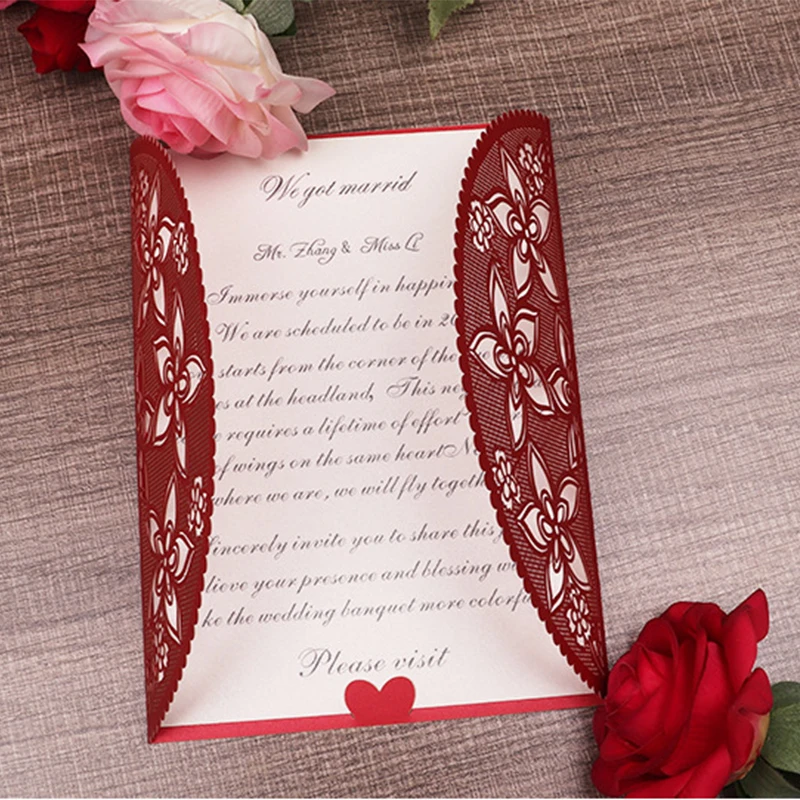 We got marrid
Mr. Zhang & Miss LI
Immerse yourself in happin
We are scheduled to be in 20
starts from the corner of the
es at the headland, This ne
e requires a lifetime of effort
of wings on the same heartN
where we are, we will fly togeth
incerely invite you to share this
lieve your presence and blessing w
ke the wedding banquet more colorfu
Please visit